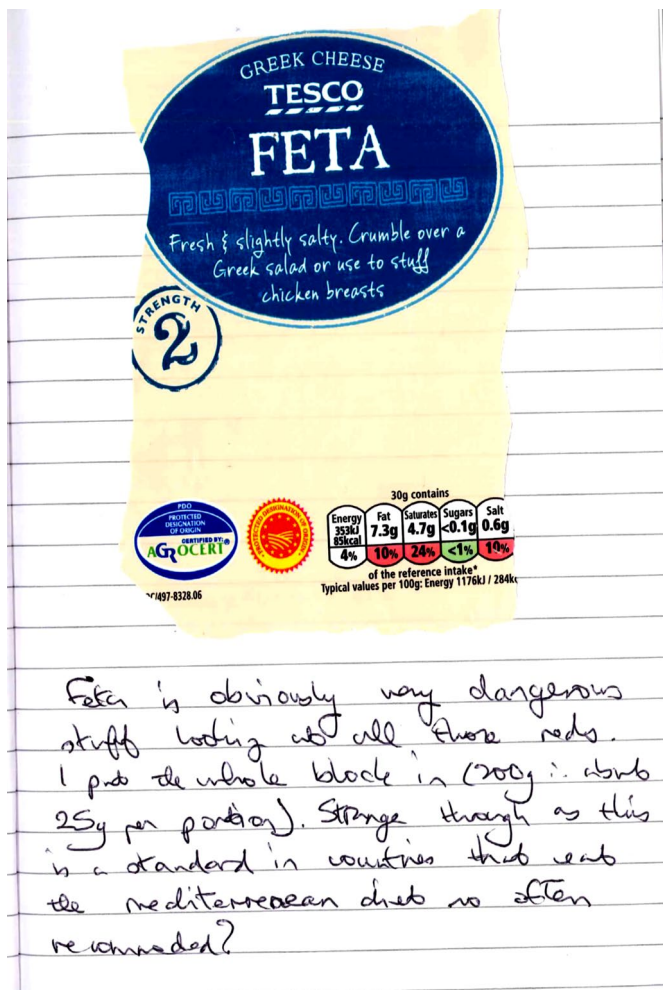 GREEK CHEESE
TESCO
FETA
Fresh & slightly salty. Crumble over a
Greek salad or use to stuff
chicken breasts
STRENGTH
2
PDO
PROTECTED
DESIGNATION
OF ORIGIN
CERTIFIED BY:
AGROCERT®
PROTECTED DESIGNATION OF ORIGIN
C/497-8328.06
30g contains
Energy 353kJ 85kcal 4%
Fat 7.3g 10%
Saturates 4.7g 24%
Sugars <0.1g <1%
Salt 0.6g 10%
of the reference intake*
Typical values per 100g: Energy 1176kJ / 284k
Feta is obviously very dangerous
stuff looking at all those reds.
I put the whole block in (200g ∴ about
25g per portion). Strange through as this
is a standard in countries that eat
the mediterrenean diet so often
recommeded?